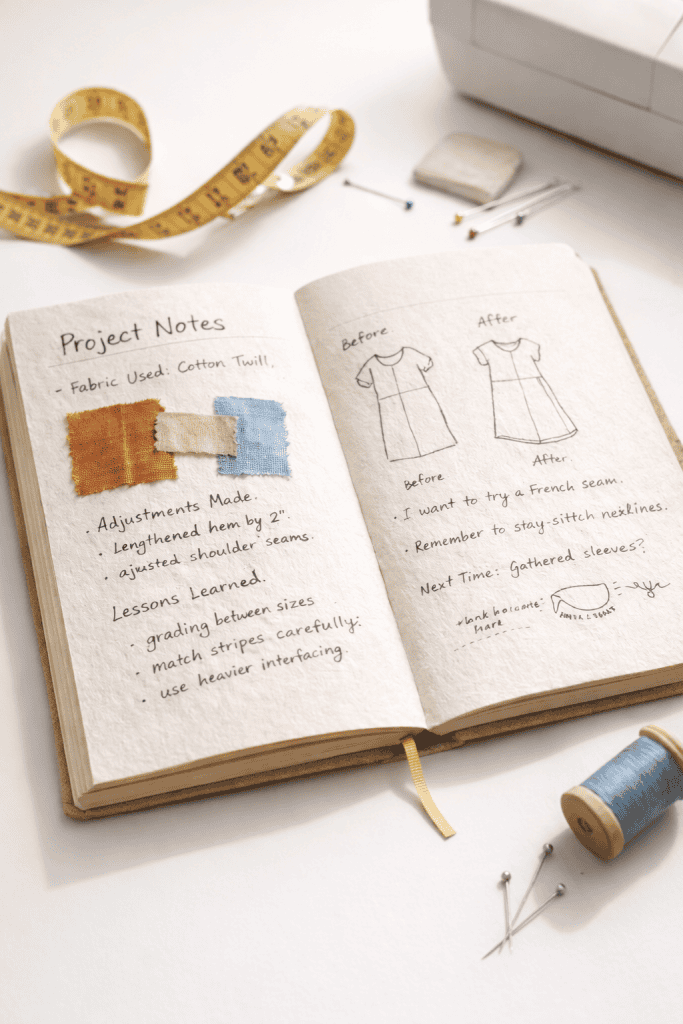 Project Notes
- Fabric Used: Cotton Twill.
· Adjustments Made.
· Lengthened hem by 2".
· ajusted shoulder seams.
Lessons Learned.
· grading between sizes
· match stripes carefully:
· use heavier interfacing.
Before
After
Before
After
· I want to try a French seam.
· Remember to stay-stitch necklines.
Next Time: Gathered sleeves?